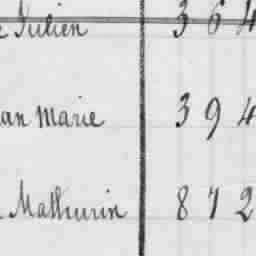 Julien 3 6 4
an Marie 3 9 4
Mathurin 8 7 2